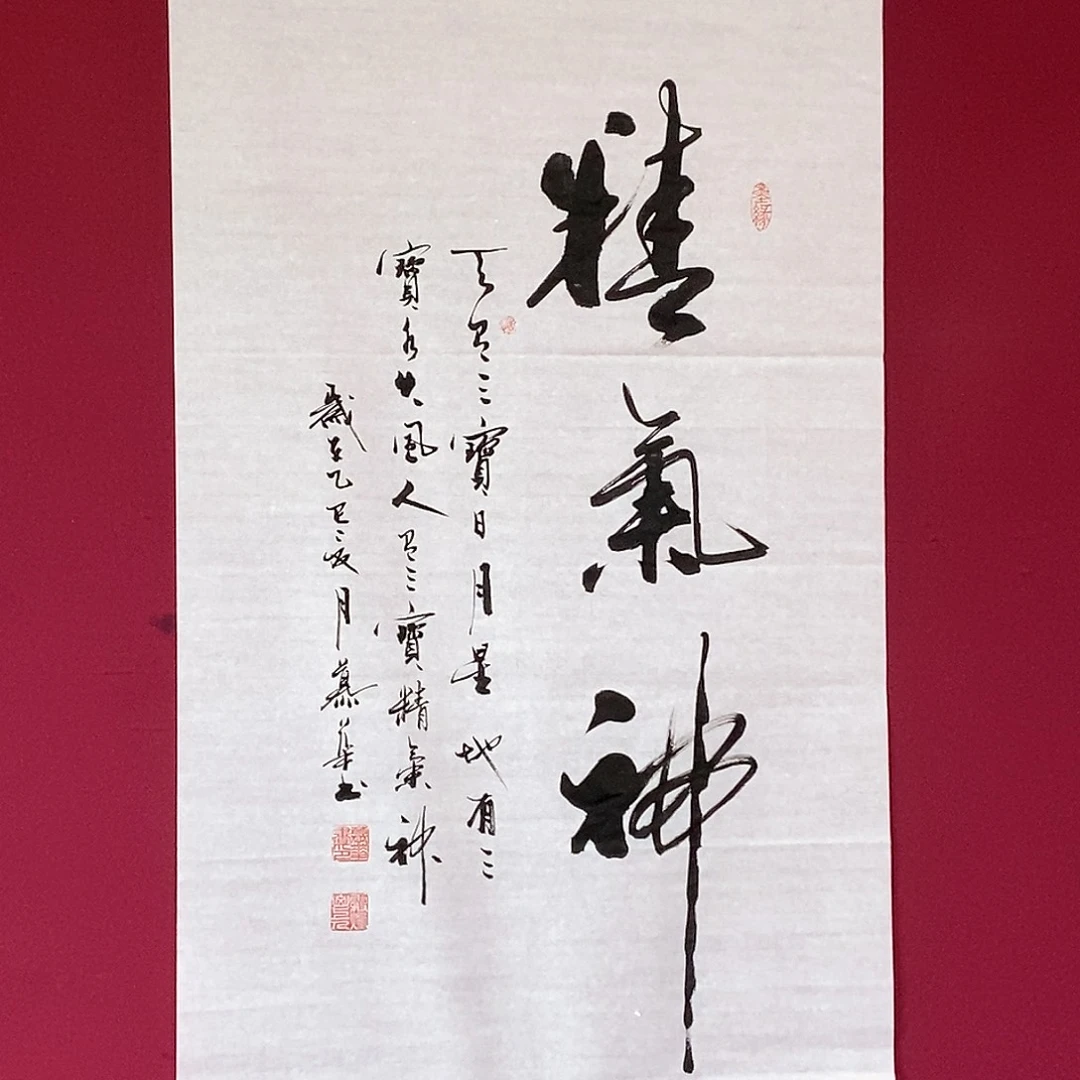 精氣神
天有三寶日月星地有三
寶水火風人有三寶精氣神
歲在乙巳夏月慕華书